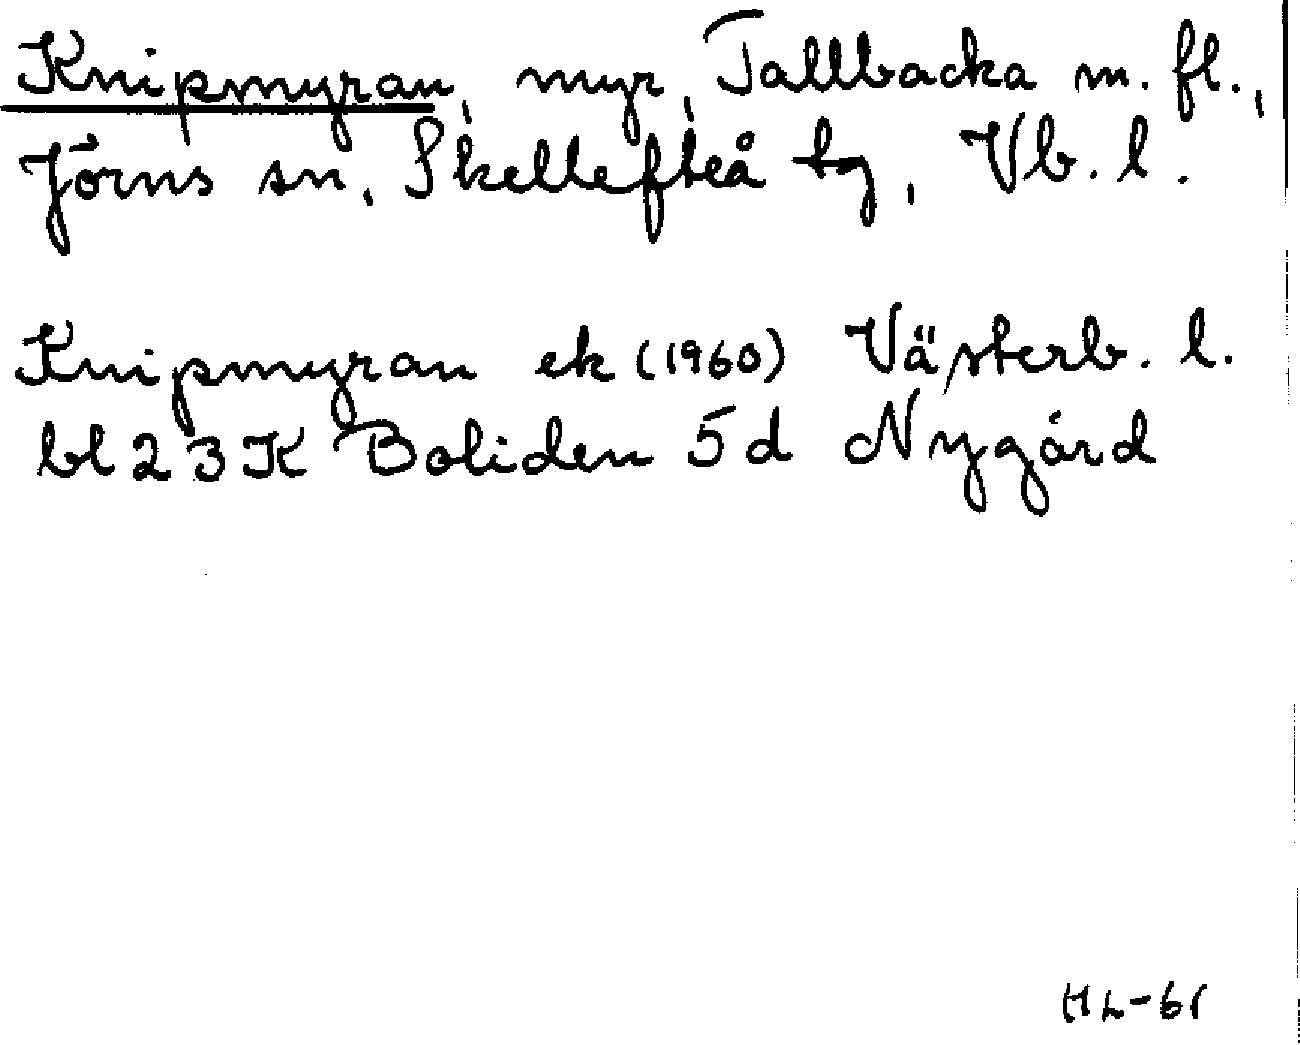 Knipmyran, myr, Tallbacka m. fl.,
Jörns sn, Skellefteå tg, Vb. l.
Knipmyran ek (1960) Västerb. l.
bl 23 K Boliden 5d Nygård
HL-61